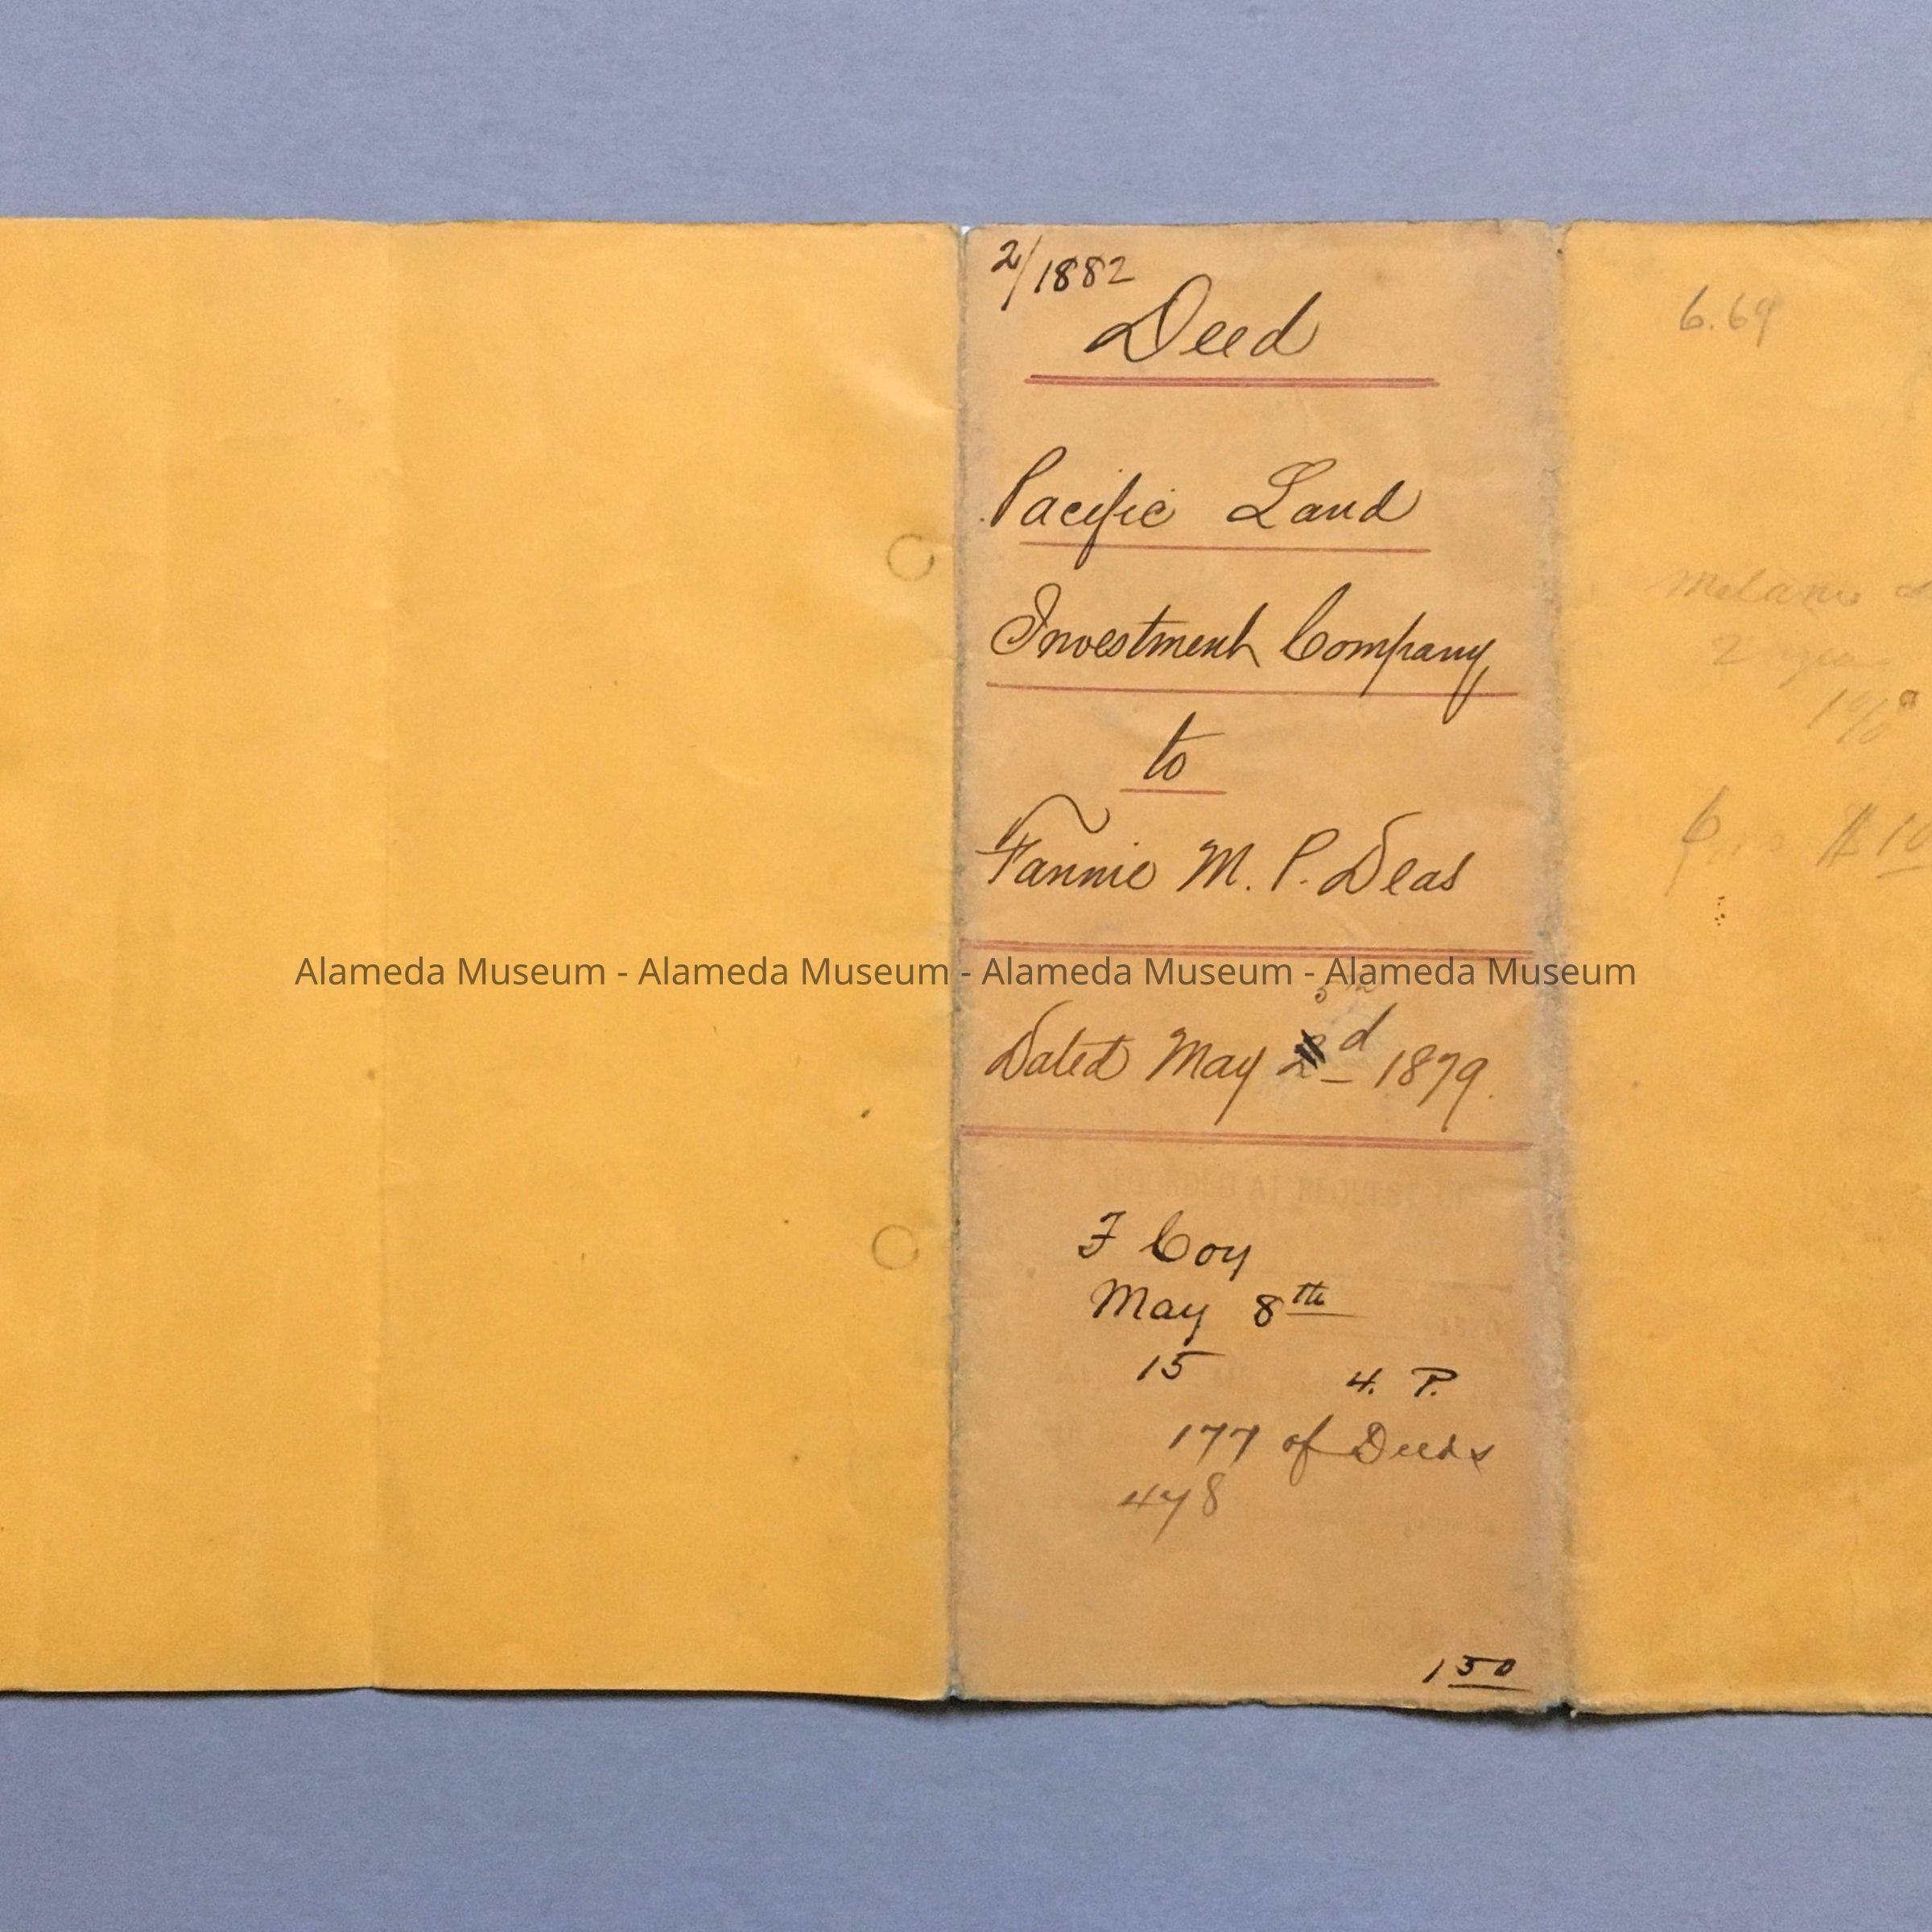 2/1882
Deed
Pacific Land
Investment Company
to
Fannie M. P. Deas
Alameda Museum - Alameda Museum - Alameda Museum - Alameda Museum
5th
Dated May 2d 1879.
F Coy
May 8th
15 4. P.
177 of Deeds
478
150
6.69
2
$10